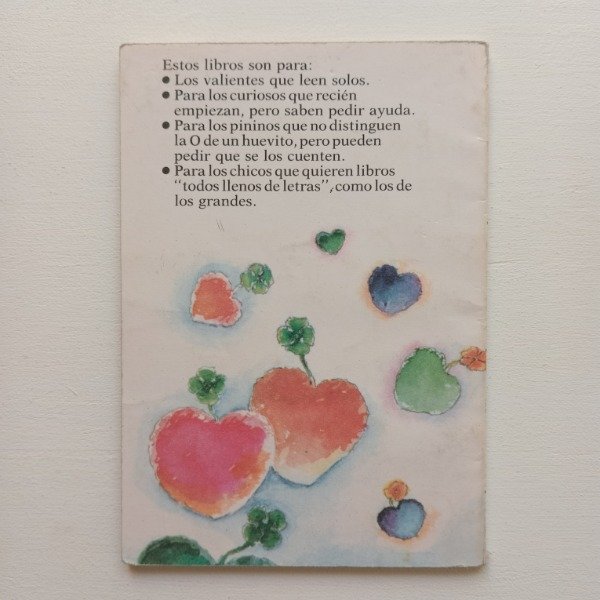 Estos libros son para:
● Los valientes que leen solos.
● Para los curiosos que recién
empiezan, pero saben pedir ayuda.
● Para los pininos que no distinguen
la O de un huevito, pero pueden
pedir que se los cuenten.
● Para los chicos que quieren libros
“todos llenos de letras”, como los de
los grandes.